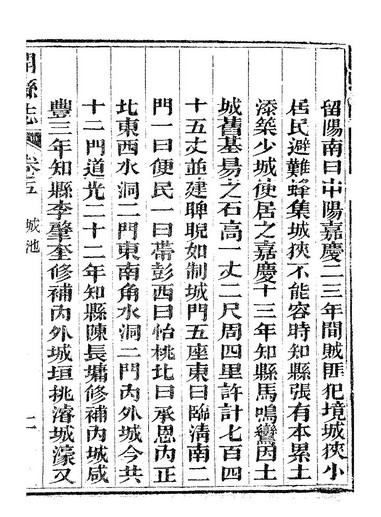 留陽南曰中陽嘉慶二三年間賊匪犯境城狹小
居民避難蜂集城狹不能容時知縣張有本累土
添築少城使居之嘉慶十三年知縣馬鳴鸞因土
城舊基易之石高一丈二尺周四里許計七百四
十五丈並建睥睨如制城門五座東曰臨清南二
門一曰便民一曰帶彭西曰怡桃北曰承恩內正
北東西水洞二門東南角水洞二門內外城今共
十二門道光二十二年知縣陳長墉修補內城咸
豐三年知縣李肇奎修補內外城垣挑濬城濠又
開縣志 卷五 城池 二